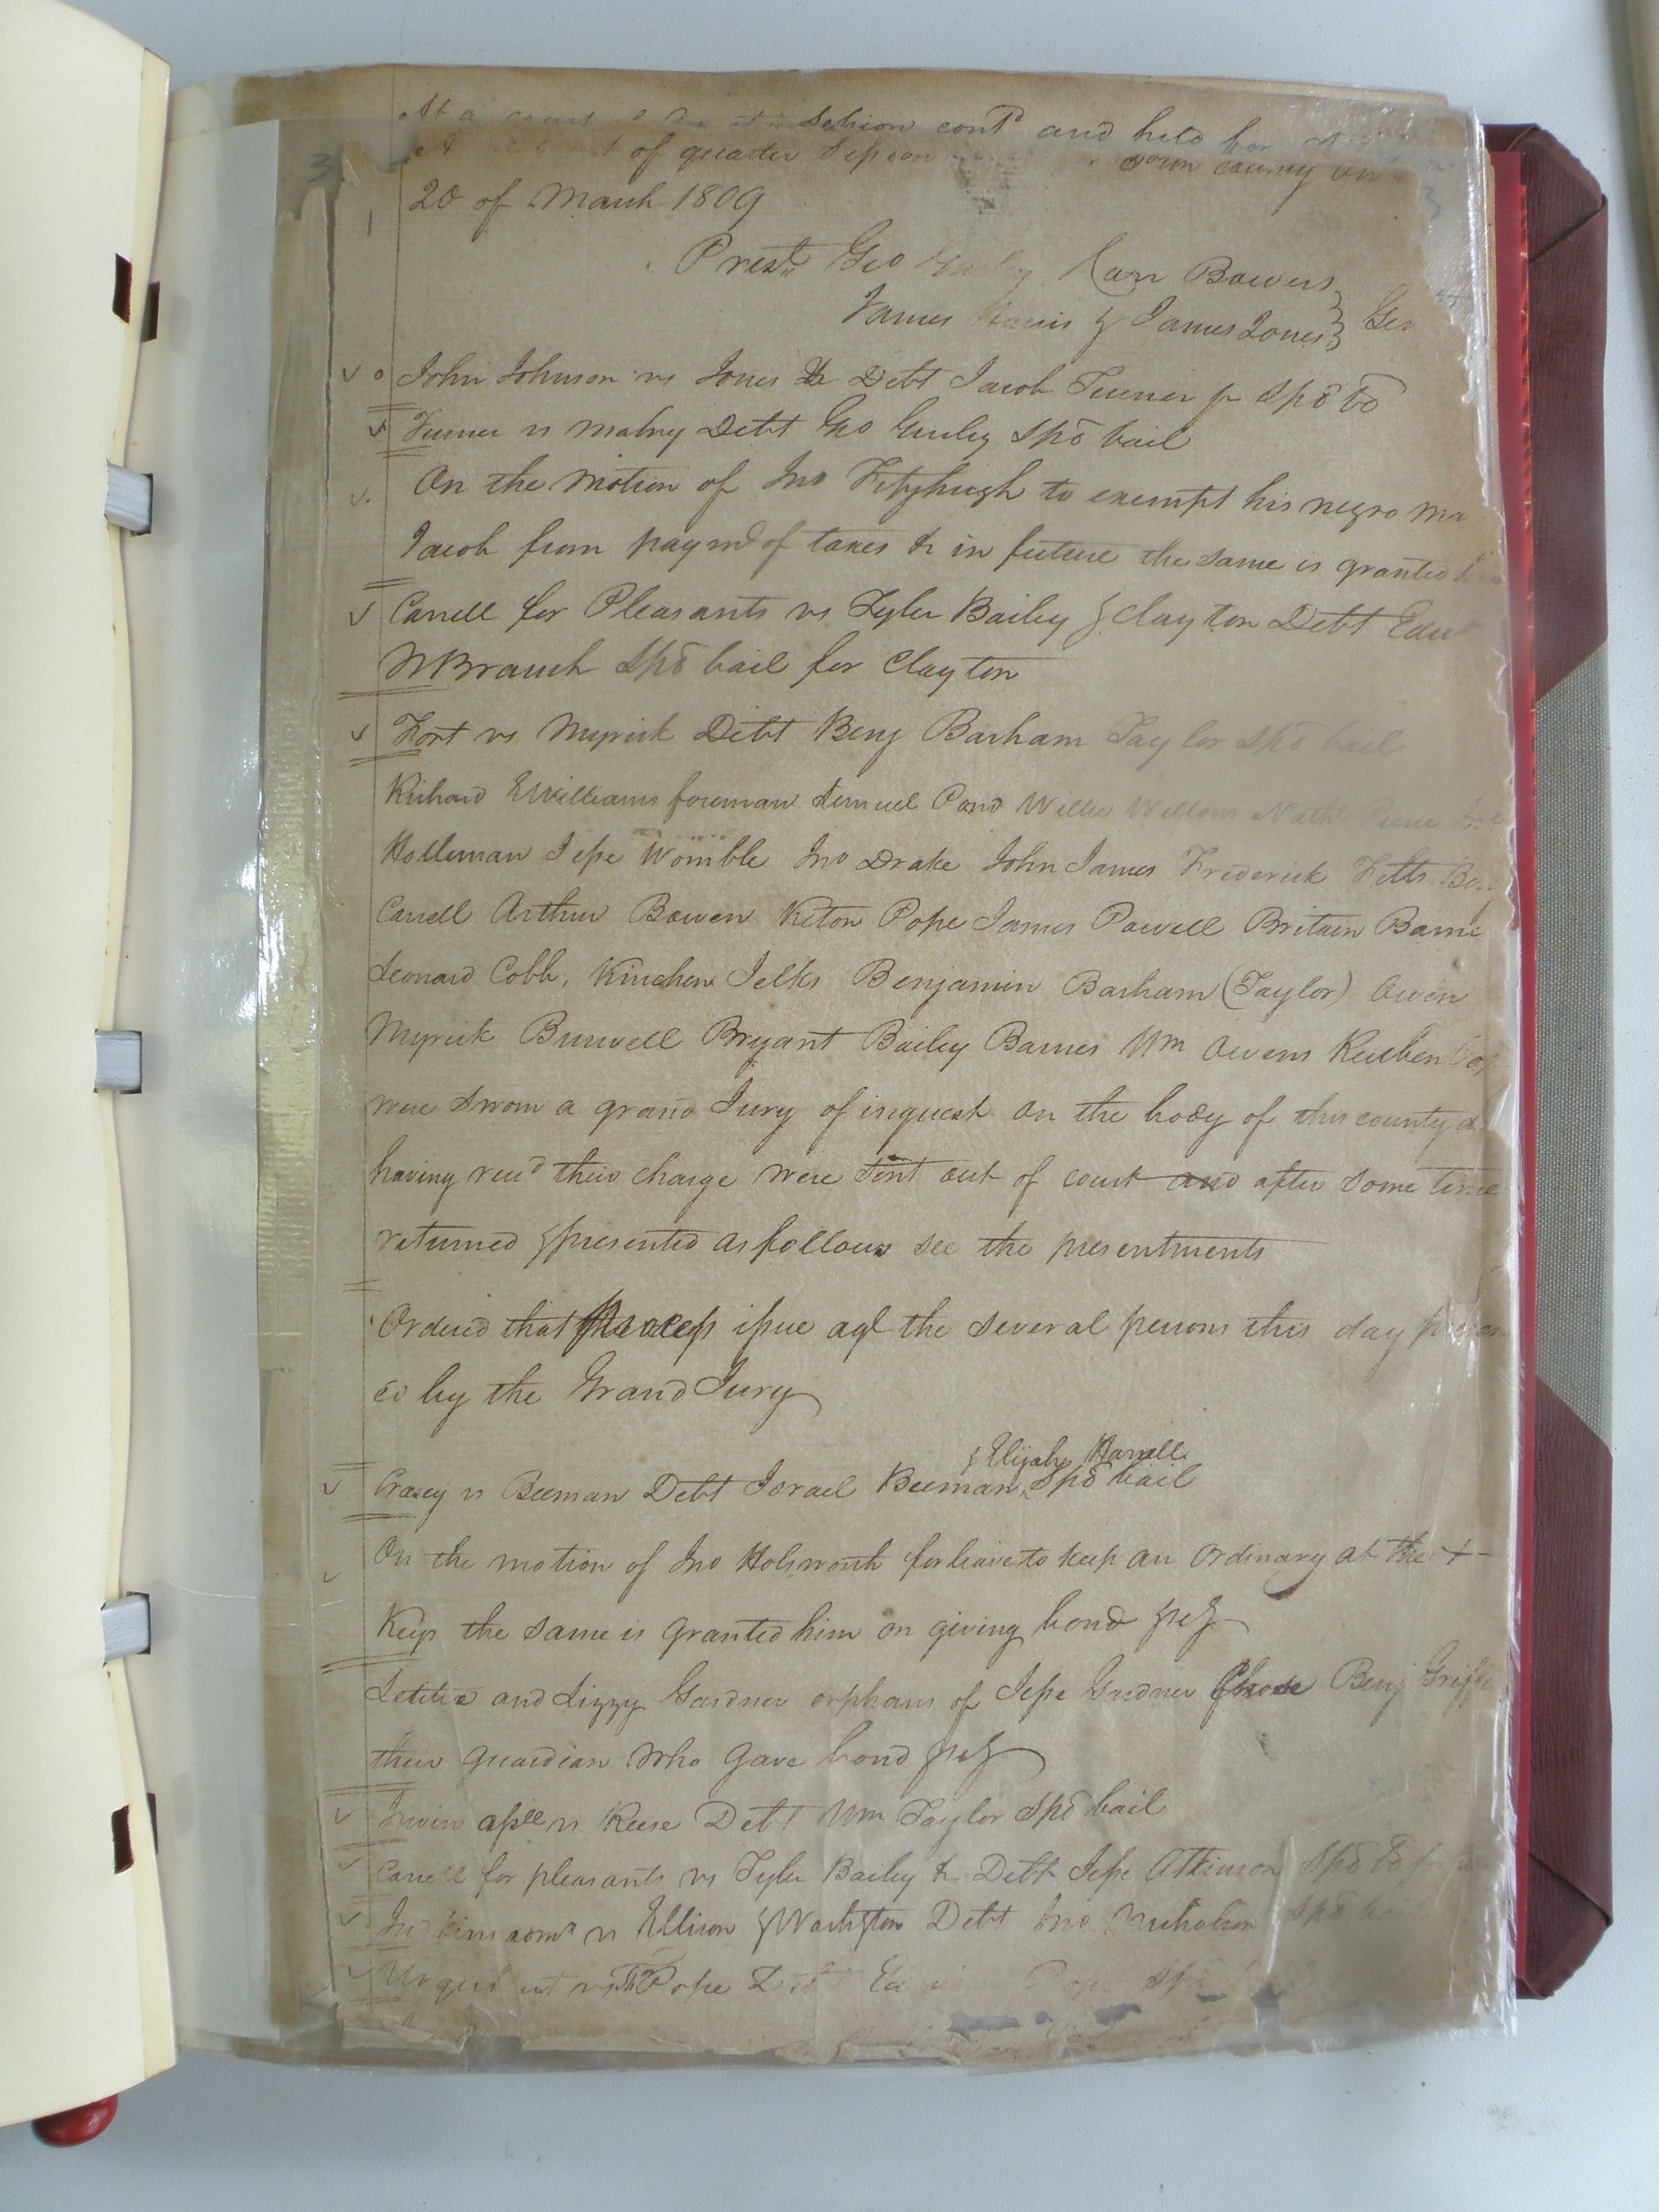 At a session contd and held for
of quarter Session County on
20 of March 1809
Prest. Geo Gurley Carr Bowers
James Harris & James Jones
John Johnson vs Jones &c Debt Jacob Turner jr Spo bd
Turner vs Malry Debt Geo Gurley Spo bail
On the motion of Jno Fitzhugh to exempt his negro ma
Jacob from paymt of taxes &c in future the same is granted
Carrell for Pleasants vs Tyler Bailey & Clayton Debt Edw
W Branch Spo bail for Clayton
Fort vs Myrick Debt Benj Barham Taylor Spo bail
Richard E Williams foreman Lemuel Pond Willie Wellons Nathl
Holleman Jesse Womble Jno Drake John James Frederick Fitts
Carrell Arthur Bowen Keton Pope James Powell Britain Barne
Leonard Cobb, Kinchen Jelks Benjamin Barham (Taylor) Owen
Myrick Burwell Bryant Bailey Barnes Wm Owens Reuben
were sworn a grand Jury of inquest on the body of this county &
having recd their charge were sent out of court and after some time
returned & presented as follows see the presentments
Ordered that process issue agt the several persons this day
ed by the Grand Jury
& Elijah Harrell
vs Beeman Debt Israel Beeman Spo bail
On the motion of Jno Holsworth for leave to keep an Ordinary at the +
Keys the same is granted him on giving bond &c
Letitia and Lizzy Gardner orphans of Jesse Gardner Chose Benj
their guardian who gave bond &c
Irwin assee vs Reese Debt Wm Taylor Spo bail
Carrell for pleasants vs Tyler Bailey &c Debt Jesse Atkinson Spo bd
admr vs Ellison & Washgton Debt Jno Nicholson Spo bail
Urquhart vs Pope Debt Pope Spo